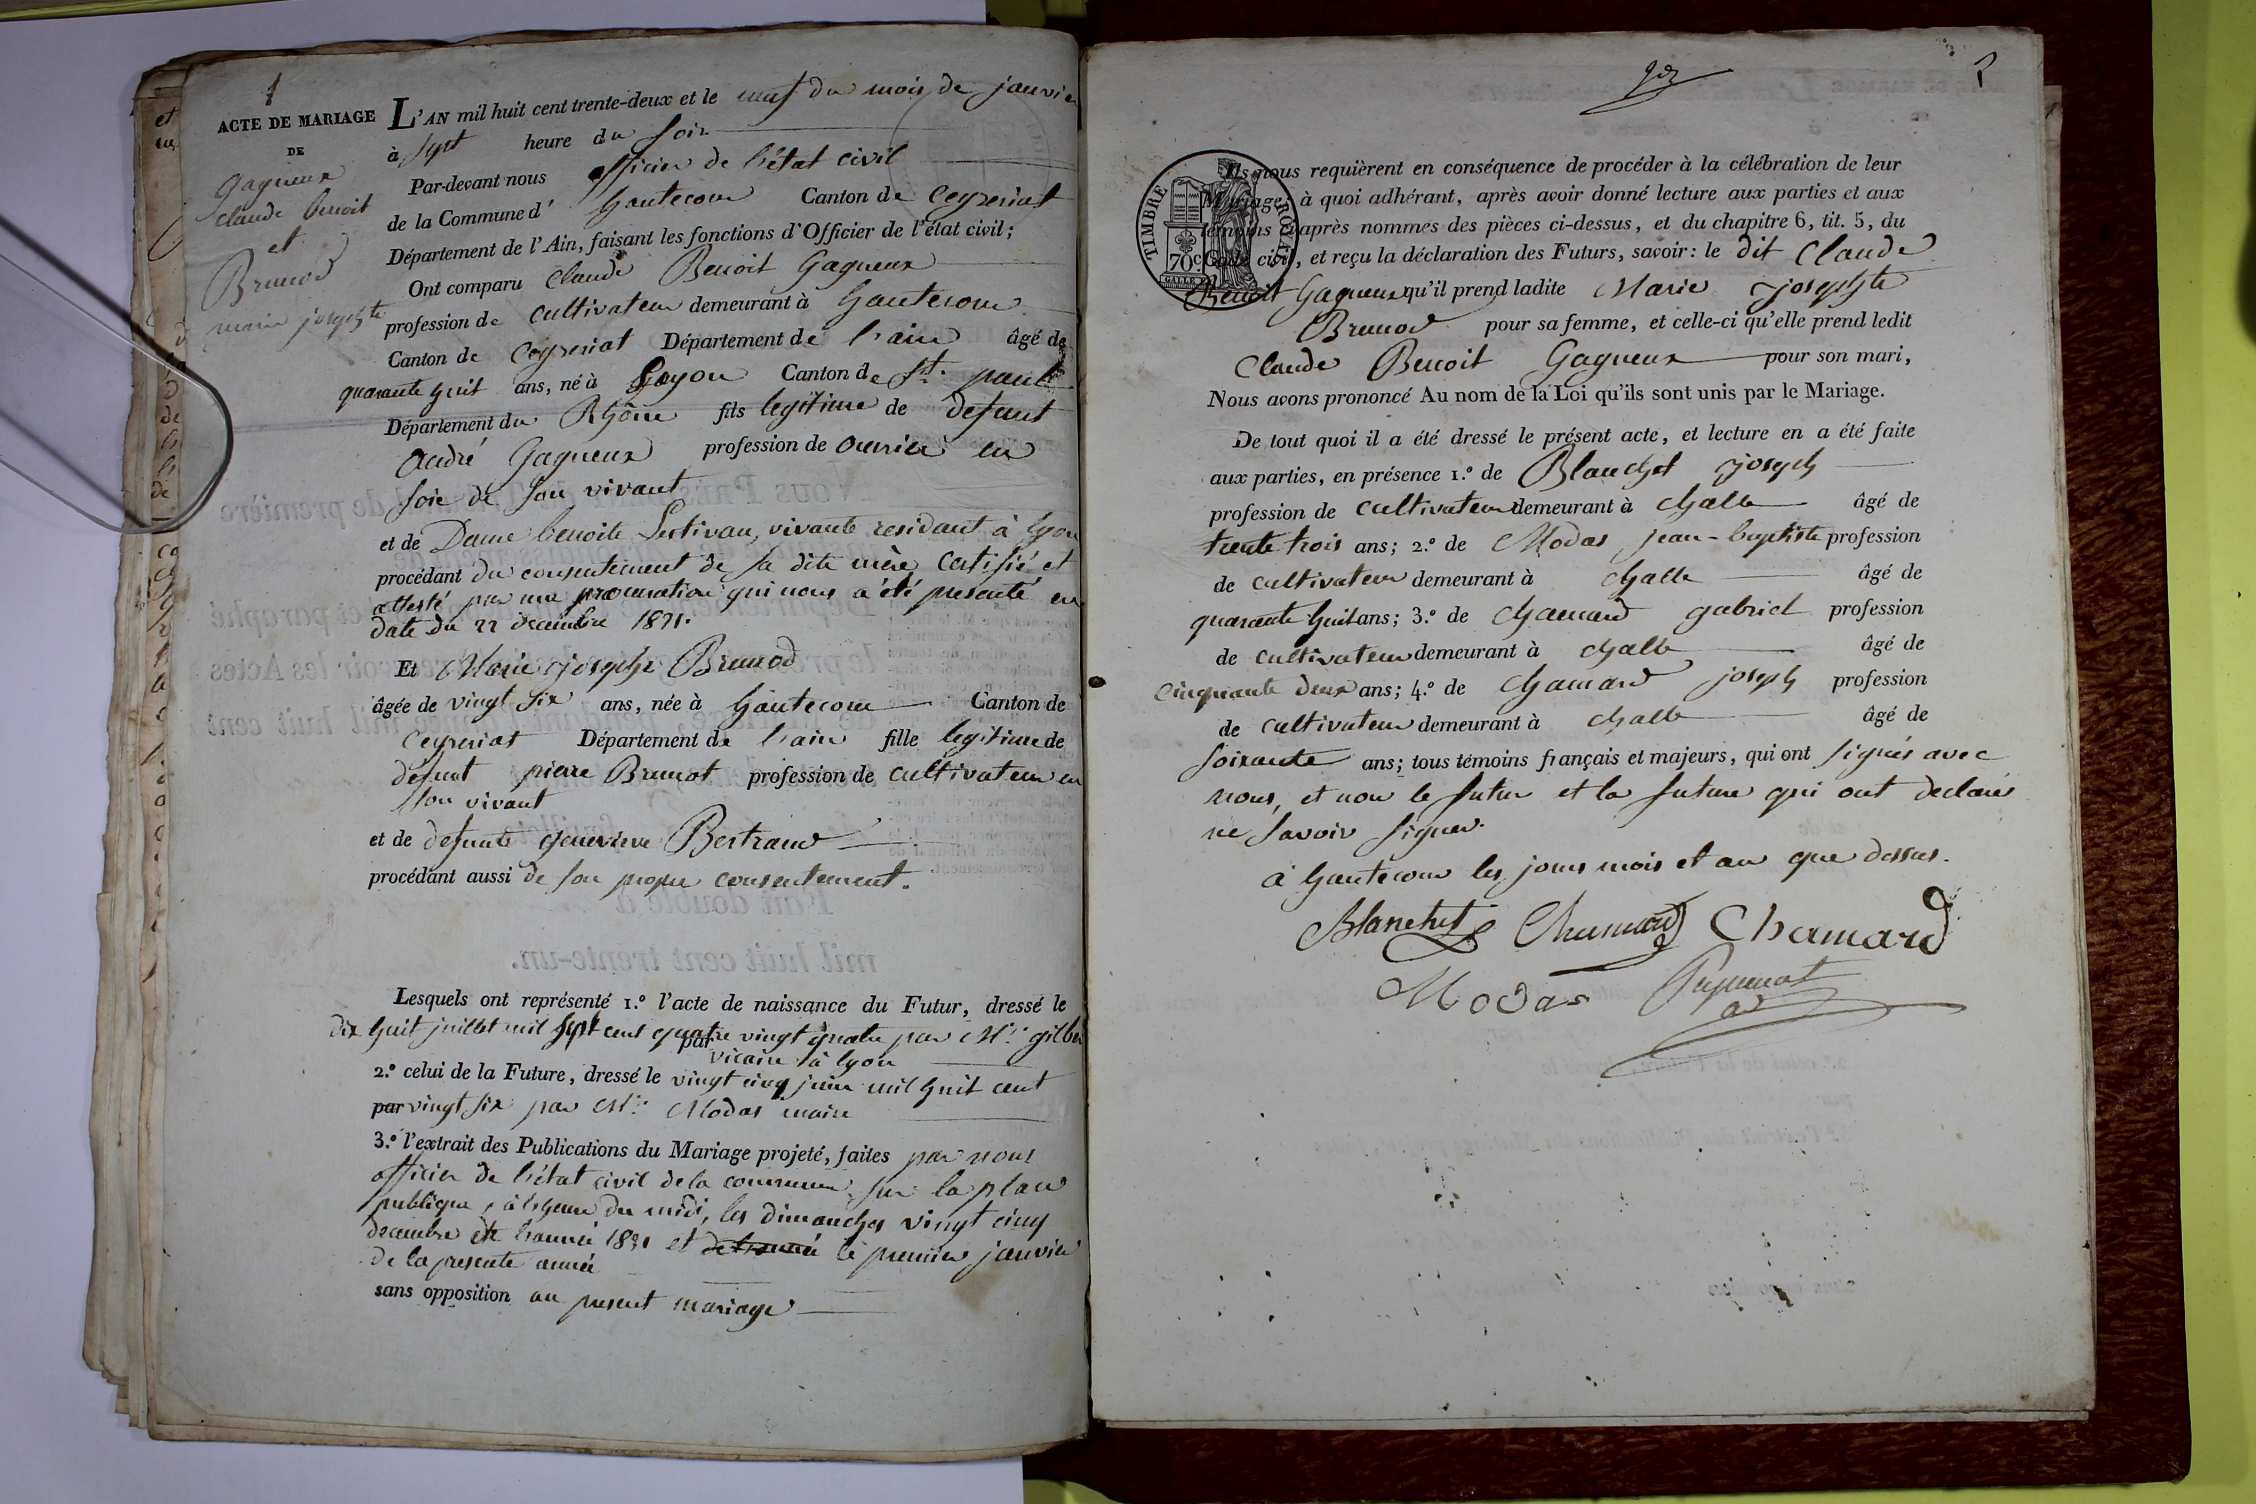 1
ACTE DE MARIAGE
DE
Gagneux
Claude Benoit
et
Brunod
marie josephte
L'AN mil huit cent trente-deux et le neuf du mois de janvier
à sept heure du soir
Par-devant nous officier de l'état civil
de la Commune d' hautecour Canton de Ceyzeriat
Département de l'Ain, faisant les fonctions d'Officier de l'état civil;
Ont comparu Claude Benoit Gagneux
profession de cultivateur demeurant à hautecour
Canton de Ceyzeriat Département de l'ain âgé de
quarante huit ans, né à Lyon Canton de St. paul
Département du Rhône fils legitime de defunt
André Gagneux profession de ouvrier en
soie de son vivant
et de Dame benoite vivante residant à lyon
procédant du consentement de sa dite mère certifié et
attesté par une procuration qui nous a été presenté en
date du 22 decembre 1831.
Et Marie josephe Brunod
âgée de vingt six ans, née à hautecour Canton de
Ceyzeriat Département de l'ain fille legitime de
defunt pierre Brunot profession de cultivateur en
son vivant
et de defunte genevieve Bertrand
procédant aussi de son propre consentement.
Lesquels ont représenté 1.º l'acte de naissance du Futur, dressé le
dix huit juillet mil sept cent quatre vingt quatre par Mr. gilber
par vicaire à lyon
2.º celui de la Future, dressé le vingt cinq juin mil huit cent
par vingt six par Mr. Modas maire
3.º l'extrait des Publications du Mariage projeté, faites par nous
officier de l'état civil de la commune sur la place
publique, à l'heure du midi, les dimanches vingt cinq
decembre de l'année 1831 et de l'année le premier janvier
de la presente année
sans opposition au present mariage
2
Ils nous requièrent en conséquence de procéder à la célébration de leur
Mariage; à quoi adhérant, après avoir donné lecture aux parties et aux
témoins ci-après nommés des pièces ci-dessus, et du chapitre 6, tit. 5, du
Code civil, et reçu la déclaration des Futurs, savoir: le dit Claude
Benoit Gagneux qu'il prend ladite Marie josephte
Brunod pour sa femme, et celle-ci qu'elle prend ledit
Claude Benoit Gagneux pour son mari,
Nous avons prononcé Au nom de la Loi qu'ils sont unis par le Mariage.
TIMBRE ROYAL
70c
De tout quoi il a été dressé le présent acte, et lecture en a été faite
aux parties, en présence 1.º de Blanchet joseph
profession de cultivateur demeurant à challe âgé de
trente trois ans; 2.º de Modas jean-baptiste profession
de cultivateur demeurant à challe âgé de
quarante huit ans; 3.º de chamard gabriel profession
de cultivateur demeurant à challe âgé de
cinquante deux ans; 4.º de chamard joseph profession
de cultivateur demeurant à challe âgé de
soixante ans; tous témoins français et majeurs, qui ont signés avec
nous, et non le futur et la future qui ont declarés
ne savoir signer.
à hautecour les jours mois et an que dessus.
Blanchet Chamard Chamard
Modas